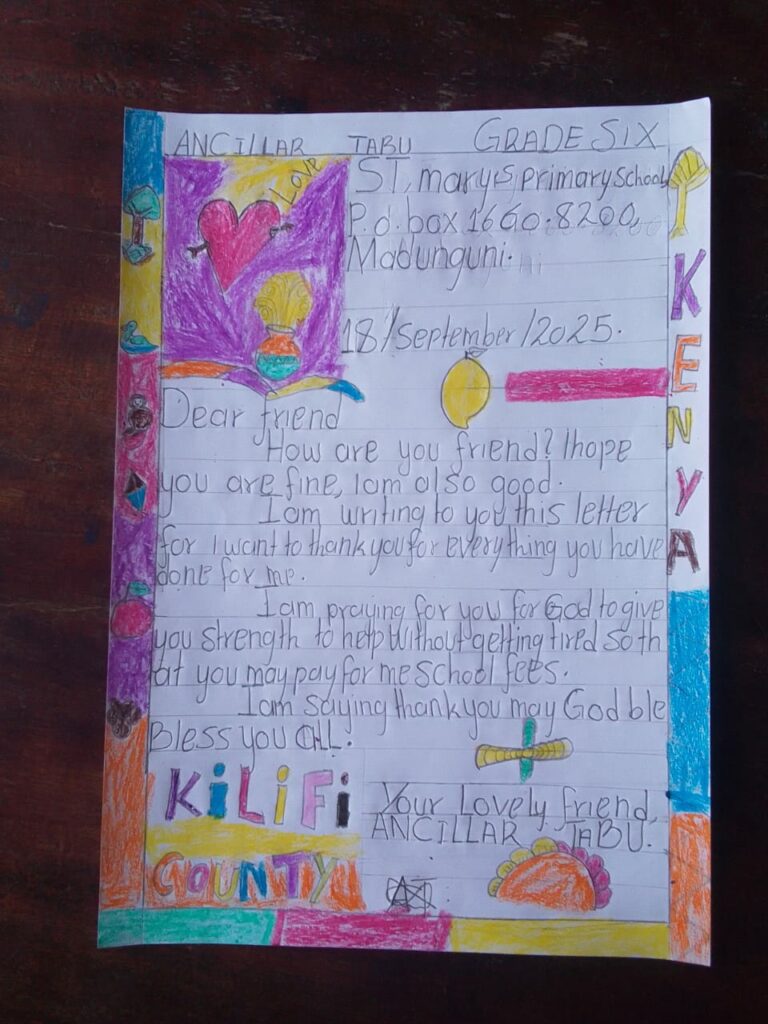 ANCILLAR TABU GRADE SIX
LOVE
ST, mary's primary School
P.o.box 1660.8200,
Madunguni.
18/September/2025.
KENYA
Dear friend
How are you friend? Ihope
you are fine, Iam also good.
Iam writing to you this letter
for i want to thank you for everything you have
done for me.
Iam praying for you for God to give
you strength to help without getting tired so th
at you may pay for me school fees.
Iam saying thank you may God ble
Bless you all.
KiLiFi
COUNTY
Your Lovely friend,
ANCILLAR TABU.